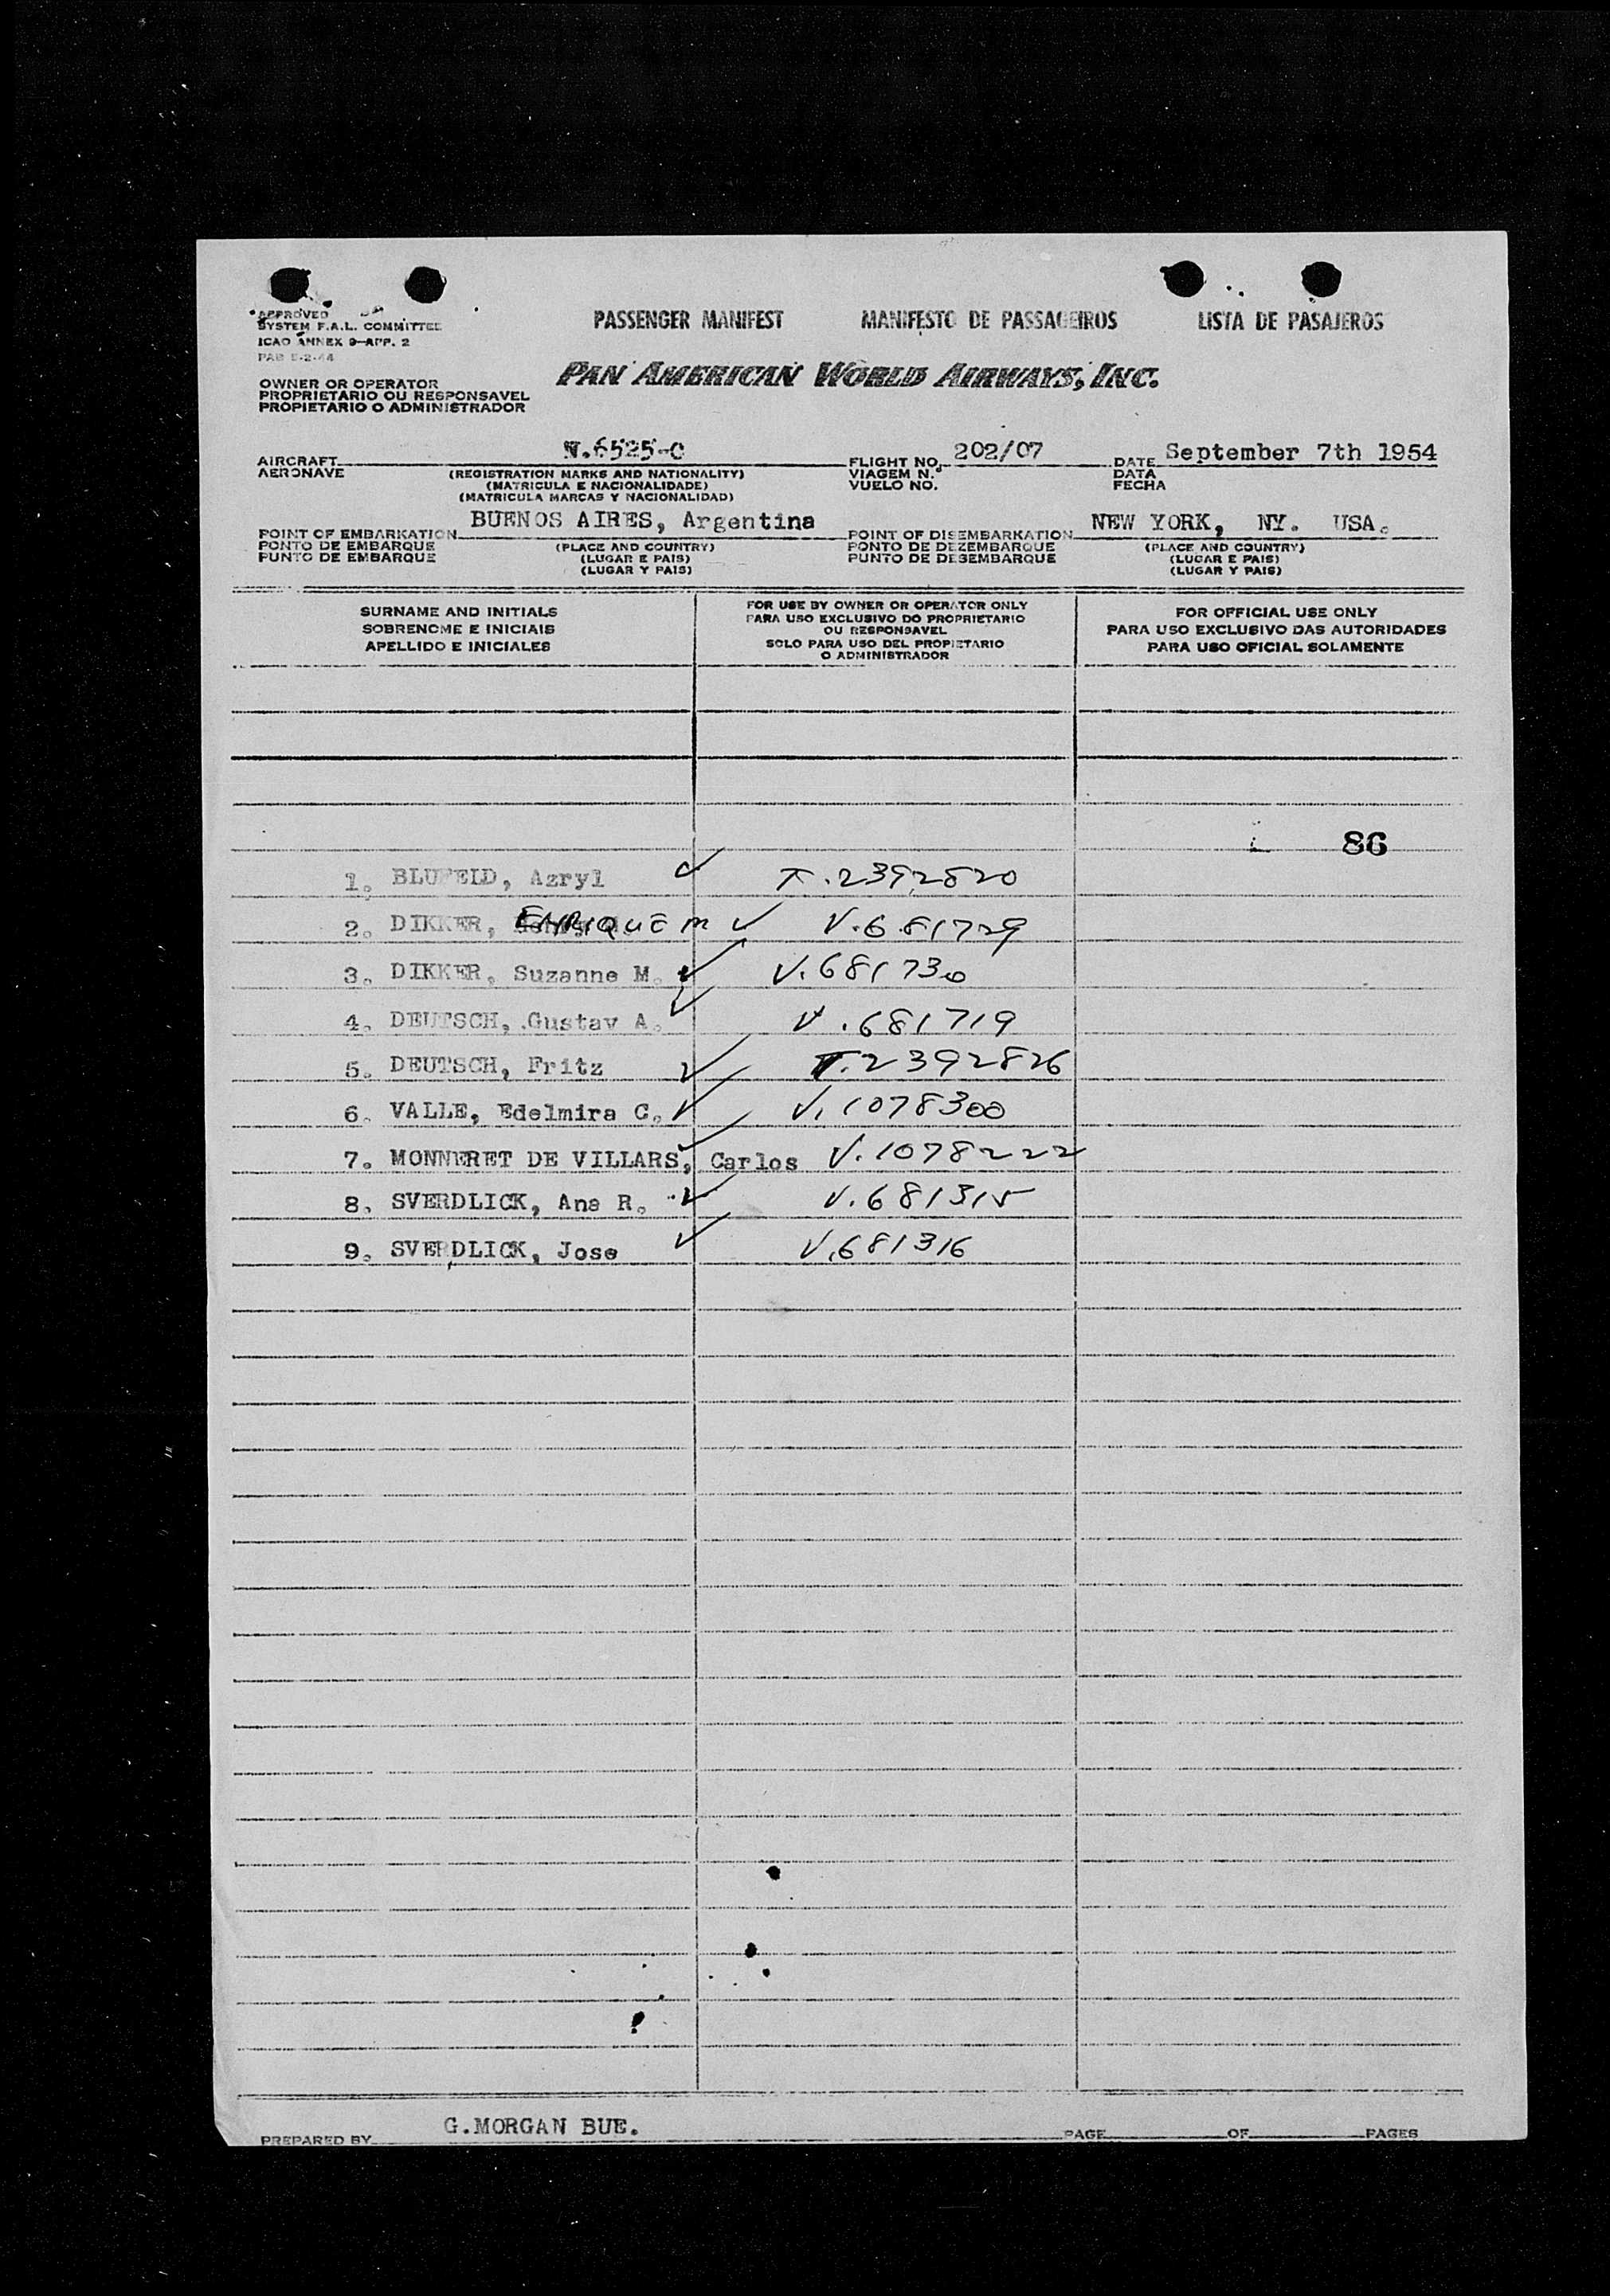 APPROVED
SYSTEM F.A.L. COMMITTEE
ICAO ANNEX 9—APP. 2
PASSENGER MANIFEST MANIFESTO DE PASSAGEIROS LISTA DE PASAJEROS
PAN AMERICAN WORLD AIRWAYS, INC.
OWNER OR OPERATOR
PROPRIETARIO OU RESPONSAVEL
PROPIETARIO O ADMINISTRADOR
AIRCRAFT N.6525-C FLIGHT NO. 202/07 DATE September 7th 1954
AERONAVE (REGISTRATION MARKS AND NATIONALITY) VIAGEM N. DATA
(MATRICULA E NACIONALIDADE) VUELO NO. FECHA
(MATRICULA MARCAS Y NACIONALIDAD)
POINT OF EMBARKATION BUENOS AIRES, Argentina POINT OF DISEMBARKATION NEW YORK, NY. USA.
PONTO DE EMBARQUE (PLACE AND COUNTRY) PONTO DE DEZEMBARQUE (PLACE AND COUNTRY)
PUNTO DE EMBARQUE (LUGAR E PAIS) PUNTO DE DESEMBARQUE (LUGAR E PAIS)
(LUGAR Y PAIS) (LUGAR Y PAIS)
SURNAME AND INITIALS
SOBRENOME E INICIAIS
APELLIDO E INICIALES
FOR USE BY OWNER OR OPERATOR ONLY
PARA USO EXCLUSIVO DO PROPRIETARIO
OU RESPONSAVEL
SOLO PARA USO DEL PROPIETARIO
O ADMINISTRADOR
FOR OFFICIAL USE ONLY
PARA USO EXCLUSIVO DAS AUTORIDADES
PARA USO OFICIAL SOLAMENTE
86
1. BLUFELD, Azryl T.2392820
2. DIKKER, ENRIQUE M V.681729
3. DIKKER, Suzanne M. V.681730
4. DEUTSCH, Gustav A. V.681719
5. DEUTSCH, Fritz T.2392826
6. VALLE, Edelmira C. V.1078300
7. MONNERET DE VILLARS, Carlos V.1078222
8. SVERDLICK, Ana R. V.681315
9. SVERDLICK, Jose V.681316
PREPARED BY G.MORGAN BUE. PAGE OF PAGES